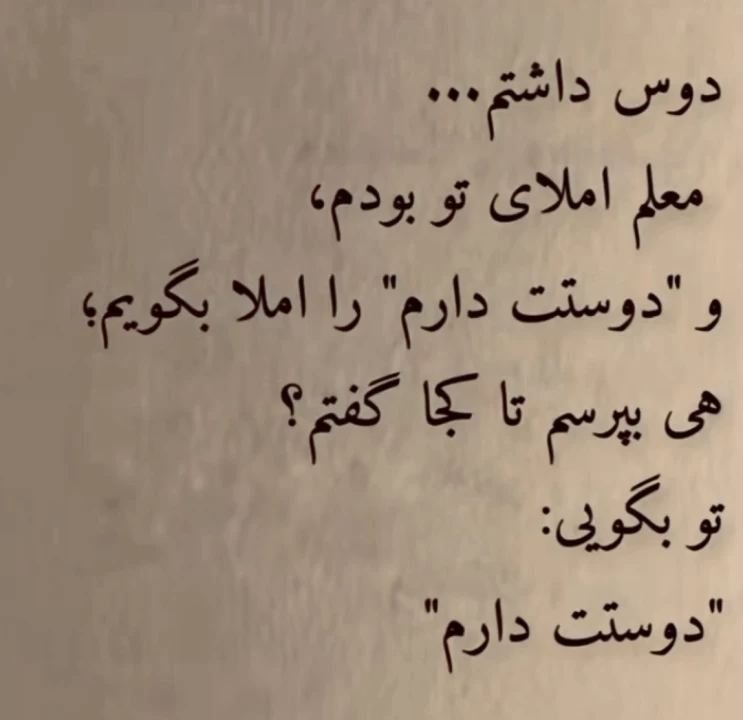 دوس داشتم...
معلم املای تو بودم،
و "دوستت دارم" را املا بگویم؛
هی بپرسم تا کجا گفتم؟
تو بگویی:
"دوستت دارم"